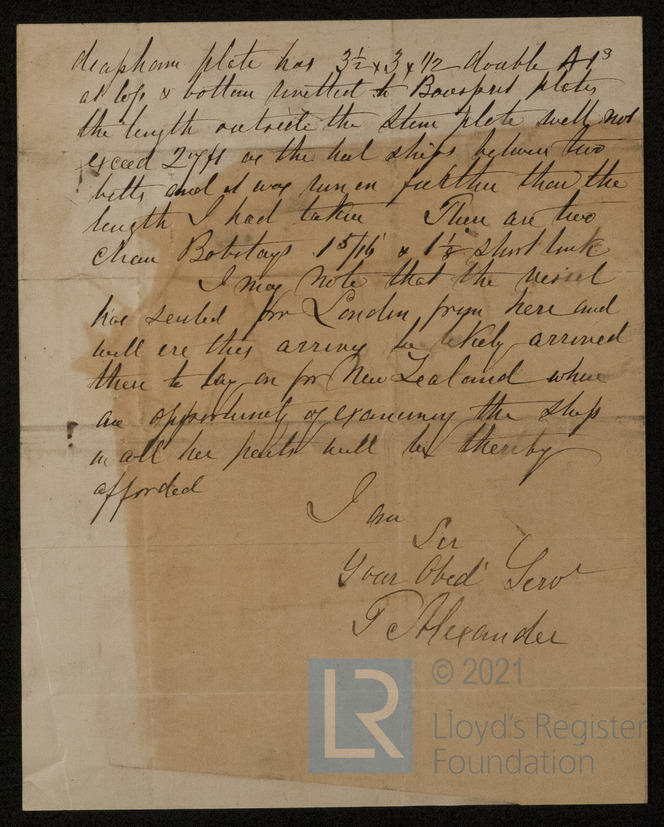 deaphorm plate has 3½ x 3 x 1/2 double A Is
at top & bottom rivetted to Bowsprit plates
the length outside the stem plate will not
exceed 27 ft as the hul ships between two
bitts and it was run on further than the
length I had taken There are two
chain Bobstays 1 5/16 & 1 1/8 short link
I may note that the vessel
has sailed for London from here and
will ere this arrives be likely arrived
there to lay on for New Zealand when
an opportunity of examining the ship
in all her parts will be thereby
afforded
I am
Sir
Your Obed Servt
T Alexander
LR
© 2021
Lloyd's Register
Foundation